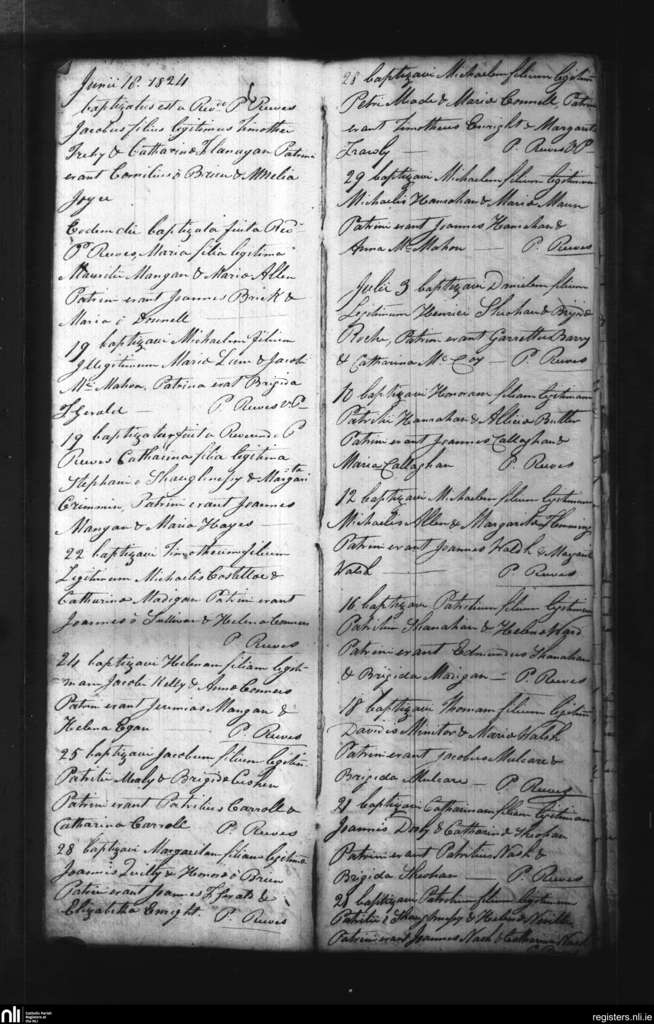 Junii 18. 1824
baptizatus est a Revd. P Reeves
Jacobus filius legitimus Timothei
& Catharina Flanagan Patrini
erant Cornelius ó Brien & Amelia
Joyce
Eodem die baptizata fuit a Revd
P Reeves Maria filia legitima
Mauritii Mangan & Maria Allen
Patrini erant Joannes Brick &
Maria ó Donnell
19 baptizavi Michaelem filium
Illegitimum Maria & Jacobi
Mc Mahon. Patrina erat Brigida
Fgerald — P. Reeves
19 baptizata fuit a Reverendo P
Reeves Catharina filia legitima
Stephani ó Shaughnessy & Margarita
Patrini erant Joannes
Mangan & Maria Hayes —
22 baptizavi Timotheum filium
Legitimum Michaelis Costelloe &
Catharina Madigan Patrini erant
Joannes ó Sullivan & Helena
P Reeves
24 baptizavi Helenam filiam legiti-
-mam Jacobi Kelly & Anna Connors
Patrini erant Jeremias Mangan &
Helena Egan P. Reeves
25 baptizavi Jacobum filium legitim
Patritii & Brigida
Patrini erant Patritius Carroll &
Catharina Carroll P. Reeves
28 baptizavi Margaritam filiam legitima
Joannis Quilty & Honora ó Brien
Patrini erant Joannes &
Elizabetha Enright. P. Reeves
28 baptizavi Michaelem filium legitim
Petri Meade & Maria Connell, Patrini
erant Timotheus Enright & Margarita
P. Reeves
29 baptizavi Michaelem filium legitimum
Michaelis Hanrahan & Maria
Patrini erant Joannes Hanrahan &
Anna Mc Mahon — P. Reeves
Julii 3 baptizavi Danielem filium
Legitimum Henrici Sheehan & Brigida
Roche, Patrini erant Garrettus Barry
& Catharina Mc Coy — P Reeves
10 baptizavi Honoram filiam legitimam
Patritii Hanrahan & Allicia Butler
Patrini erant Joannes Callaghan &
Maria Callaghan P. Reeves
12 baptizavi Michaelem filium legitimum
Michaelis Allen & Margarita Flemming
Patrini erant Joannes Walsh &
Walsh — P Reeves
16 baptizavi Patritium filium legitimum
Patritii Shanahan & Helena
Patrini erant Edmundus Shanahan
& Brigida Madigan — P. Reeves
18 baptizavi Thomam filium legitim
Davidis Minitor & Maria Walsh
Patrini erant Jacobus Mulcare &
Brigida Mulcare — P. Reeves
21 baptizavi Catharinam filiam legitimam
Joannis Daly & Catharina Sheehan
Patrini erant Patritius Nash &
Brigida Sheehan — P. Reeves
21 baptizavi Patritium filium legitimum
Patritii ó Shaughnessy & Helena Neville
Patrini erant Joannes Nash & Catharina Nash
P Reeves
nli
Catholic Parish
Registers at
the NLI
registers.nli.ie